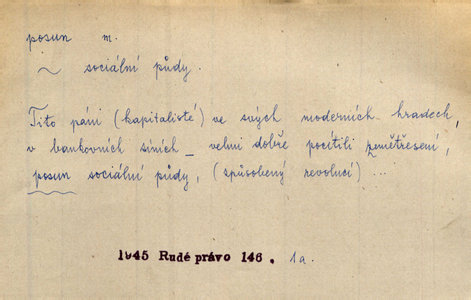 posun m.
~ sociální půdy.
Tito páni (kapitalisté) ve svých moderních hradech,
v bankovních síních _ velmi dobře pocítili zemětřesení,
posun sociální půdy, (způsobený revolucí) ...
1945 Rudé právo 146. 1a.